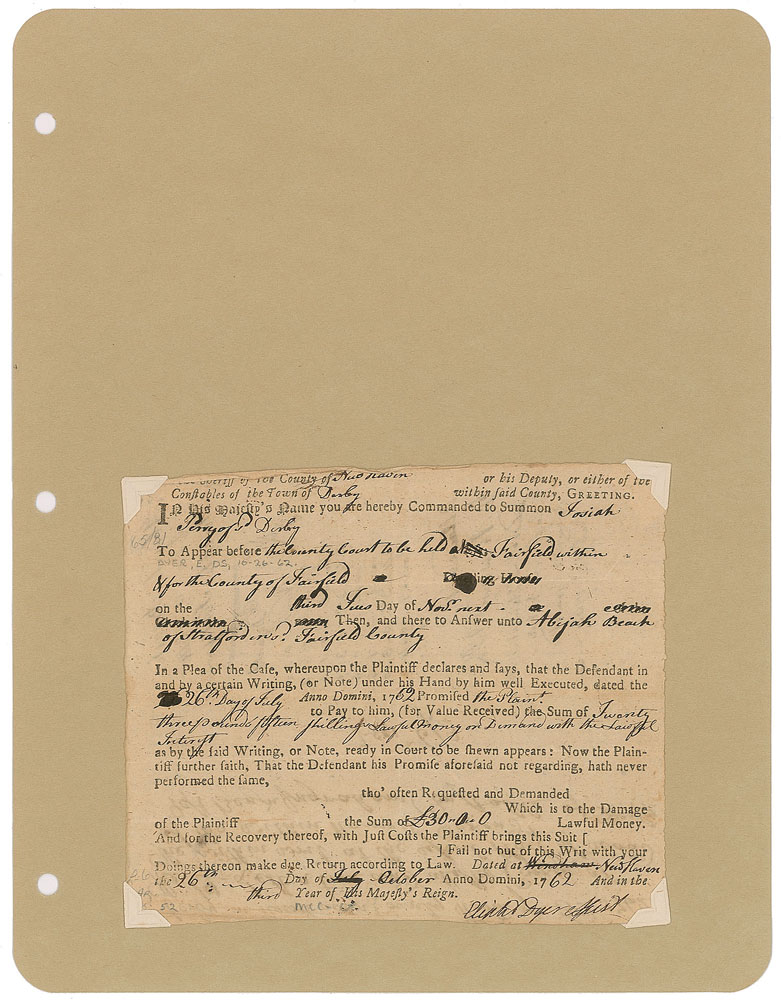 the Sheriff of the County of New haven or his Deputy, or either of the
Constables of the Town of Derby within said County, GREETING.
In His Majesty's Name you are hereby Commanded to Summon Josiah
Perry of sd Derby
65/81
To Appear before the County Court to be held at Fairfield within
DYER, E, DS, 10-26-62
& for the County of Fairfield
on the third Tues Day of Novr. next
Then, and there to Answer unto Abijah Beach
of Stratford in sd. Fairfield County
In a Plea of the Case, whereupon the Plaintiff declares and says, that the Defendant in
and by a certain Writing, (or Note) under his Hand by him well Executed, dated the
26th Day of July Anno Domini, 1762 Promised the Plaint.
to Pay to him, (for Value Received) the Sum of Twenty
three pounds fifteen shillings Lawful money on Demand with the Lawful
Interest
as by the said Writing, or Note, ready in Court to be shewn appears: Now the Plain-
tiff further saith, That the Defendant his Promise aforesaid not regarding, hath never
performed the same,
tho' often Requested and Demanded
Which is to the Damage
of the Plaintiff the Sum of £30-0-0 Lawful Money.
And for the Recovery thereof, with Just Costs the Plaintiff brings this Suit [
] Fail not but of this Writ with your
Doings thereon make due Return according to Law. Dated at Windham New Haven
the 26th Day of July October Anno Domini, 1762 And in the
third Year of his Majesty's Reign.
52
Eliphlt Dyer Assist